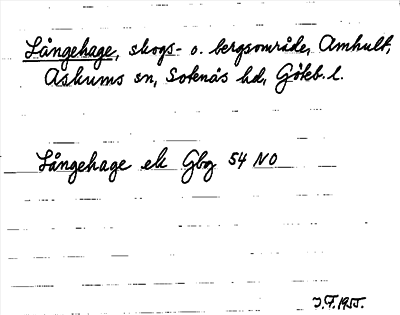 Långehage, skogs- o. bergsområde, Amhult,
Askums sn, Sotenäs hd, Göteb. l.
Långehage ek Gbg 54 NO
J.F. 1955.